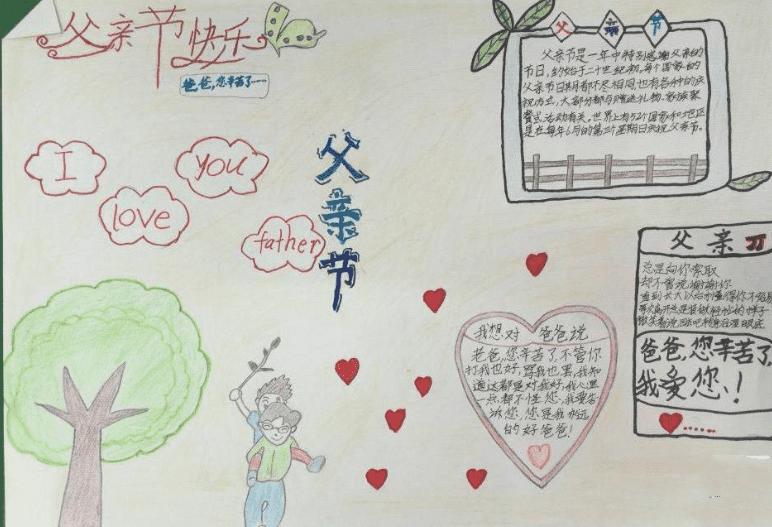 父亲节快乐
爸爸,您辛苦了……
I
love
you
father
父亲节
父 亲 节
父亲节是一年中特别感谢父亲的
节日,约始于二十世纪初,每个国家的
父亲节日期有不尽相同,也有各种的庆
祝方式,大部分都与赠送礼物、家族聚
餐或活动有关。世界上有52个国家和地区
是在每年6月的第三个星期日庆祝父亲节。
父亲
总是向你索取
却不曾说谢谢你
直到长大以后才懂得你不容易
爸爸,您辛苦了,
我爱您!
我想对 爸爸说
老爸,您辛苦了,不管你
打我也好,骂我也罢,我知
道这都是对我好,我心里
一点都不怪您,我要告
诉您,您是我永远
的好爸爸!